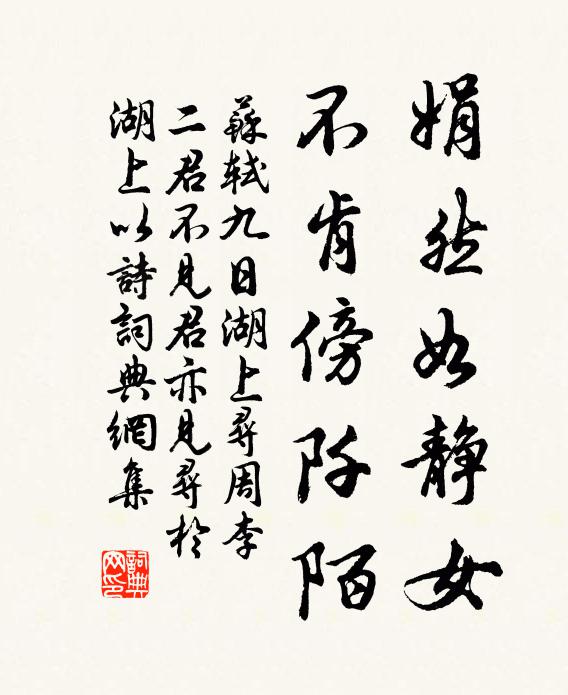 娟然如静女
不肯傍阡陌
蘇軾九日湖上尋周李
二君不見君亦見尋於
湖上以詩詞典網集
詞典
网印